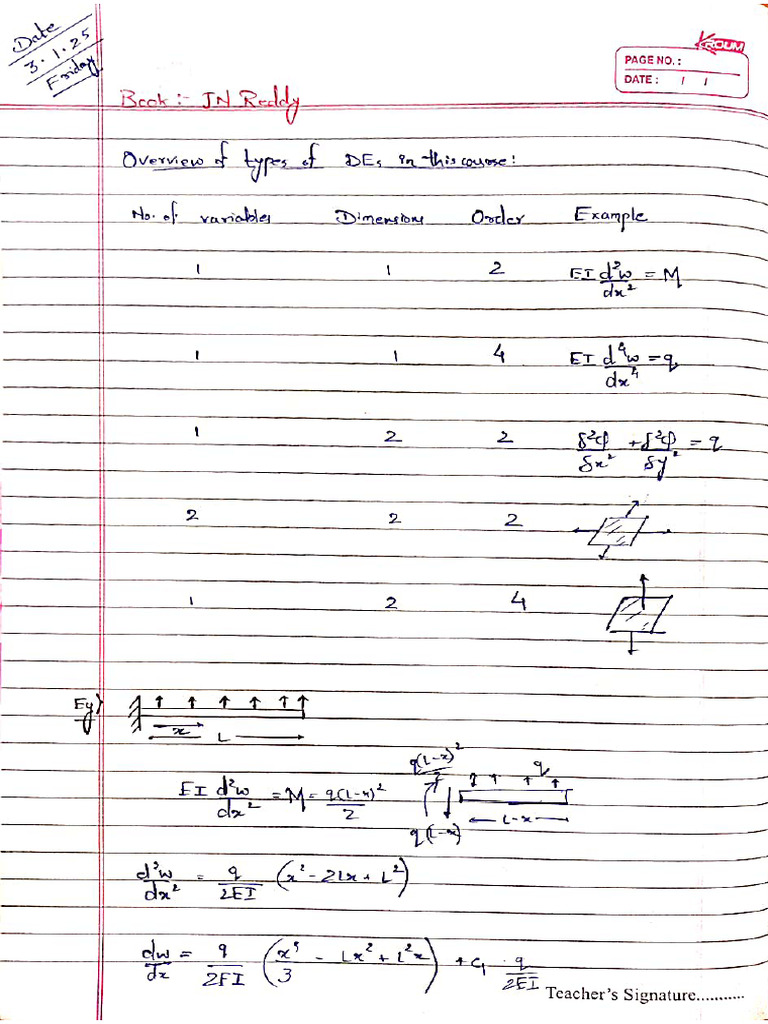 Date
3.1.25
Friday
KROUM
PAGE NO. :
DATE : / /
Book :- JN Reddy
Overview of types of DEs in this course :
No. of variables Dimensions Order Example
1 1 2 EI d²w/dx² = M
1 1 4 EI d⁴w/dx⁴ = q
1 2 2 δ²φ/δx² + δ²φ/δy² = q
2 2 2
1 2 4
Eg)
x
L
q(L-x)²/2
q
EI d²w/dx² = M = q(L-x)²/2
L-x
q(L-x)
d²w/dx² = q/2EI (x² - 2Lx + L²)
dw/dx = q/2EI (x³/3 - Lx² + L²x) + C₁ . q/2EI
Teacher's Signature...........